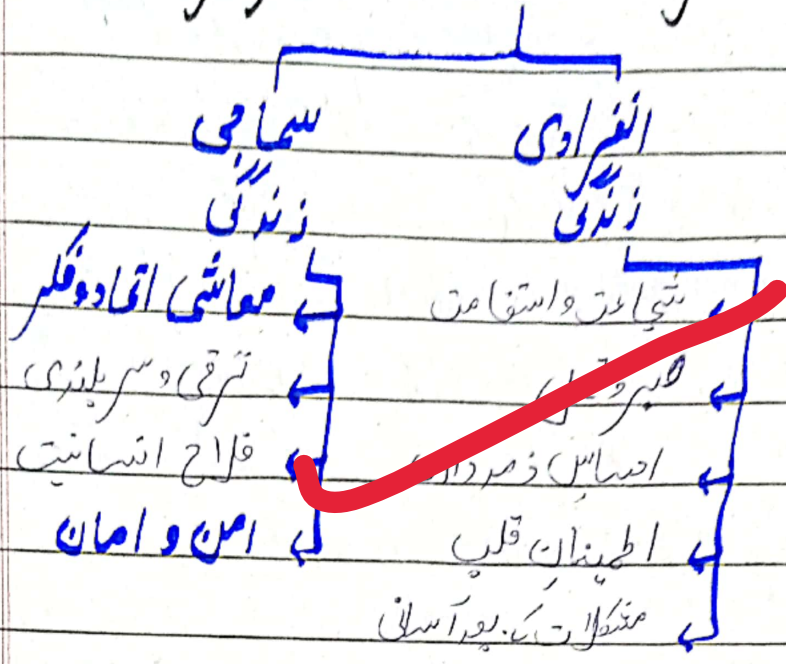 انفرادی زندگی
شجاعت و استقامت
صبر و تحمل
احساسِ ذمہ داری
اطمینانِ قلب
مشکلات کے بعد آسانی
سماجی زندگی
معاشی اتحاد و فکر
ترقی و سر بلندی
فلاح انسانیت
امن و امان